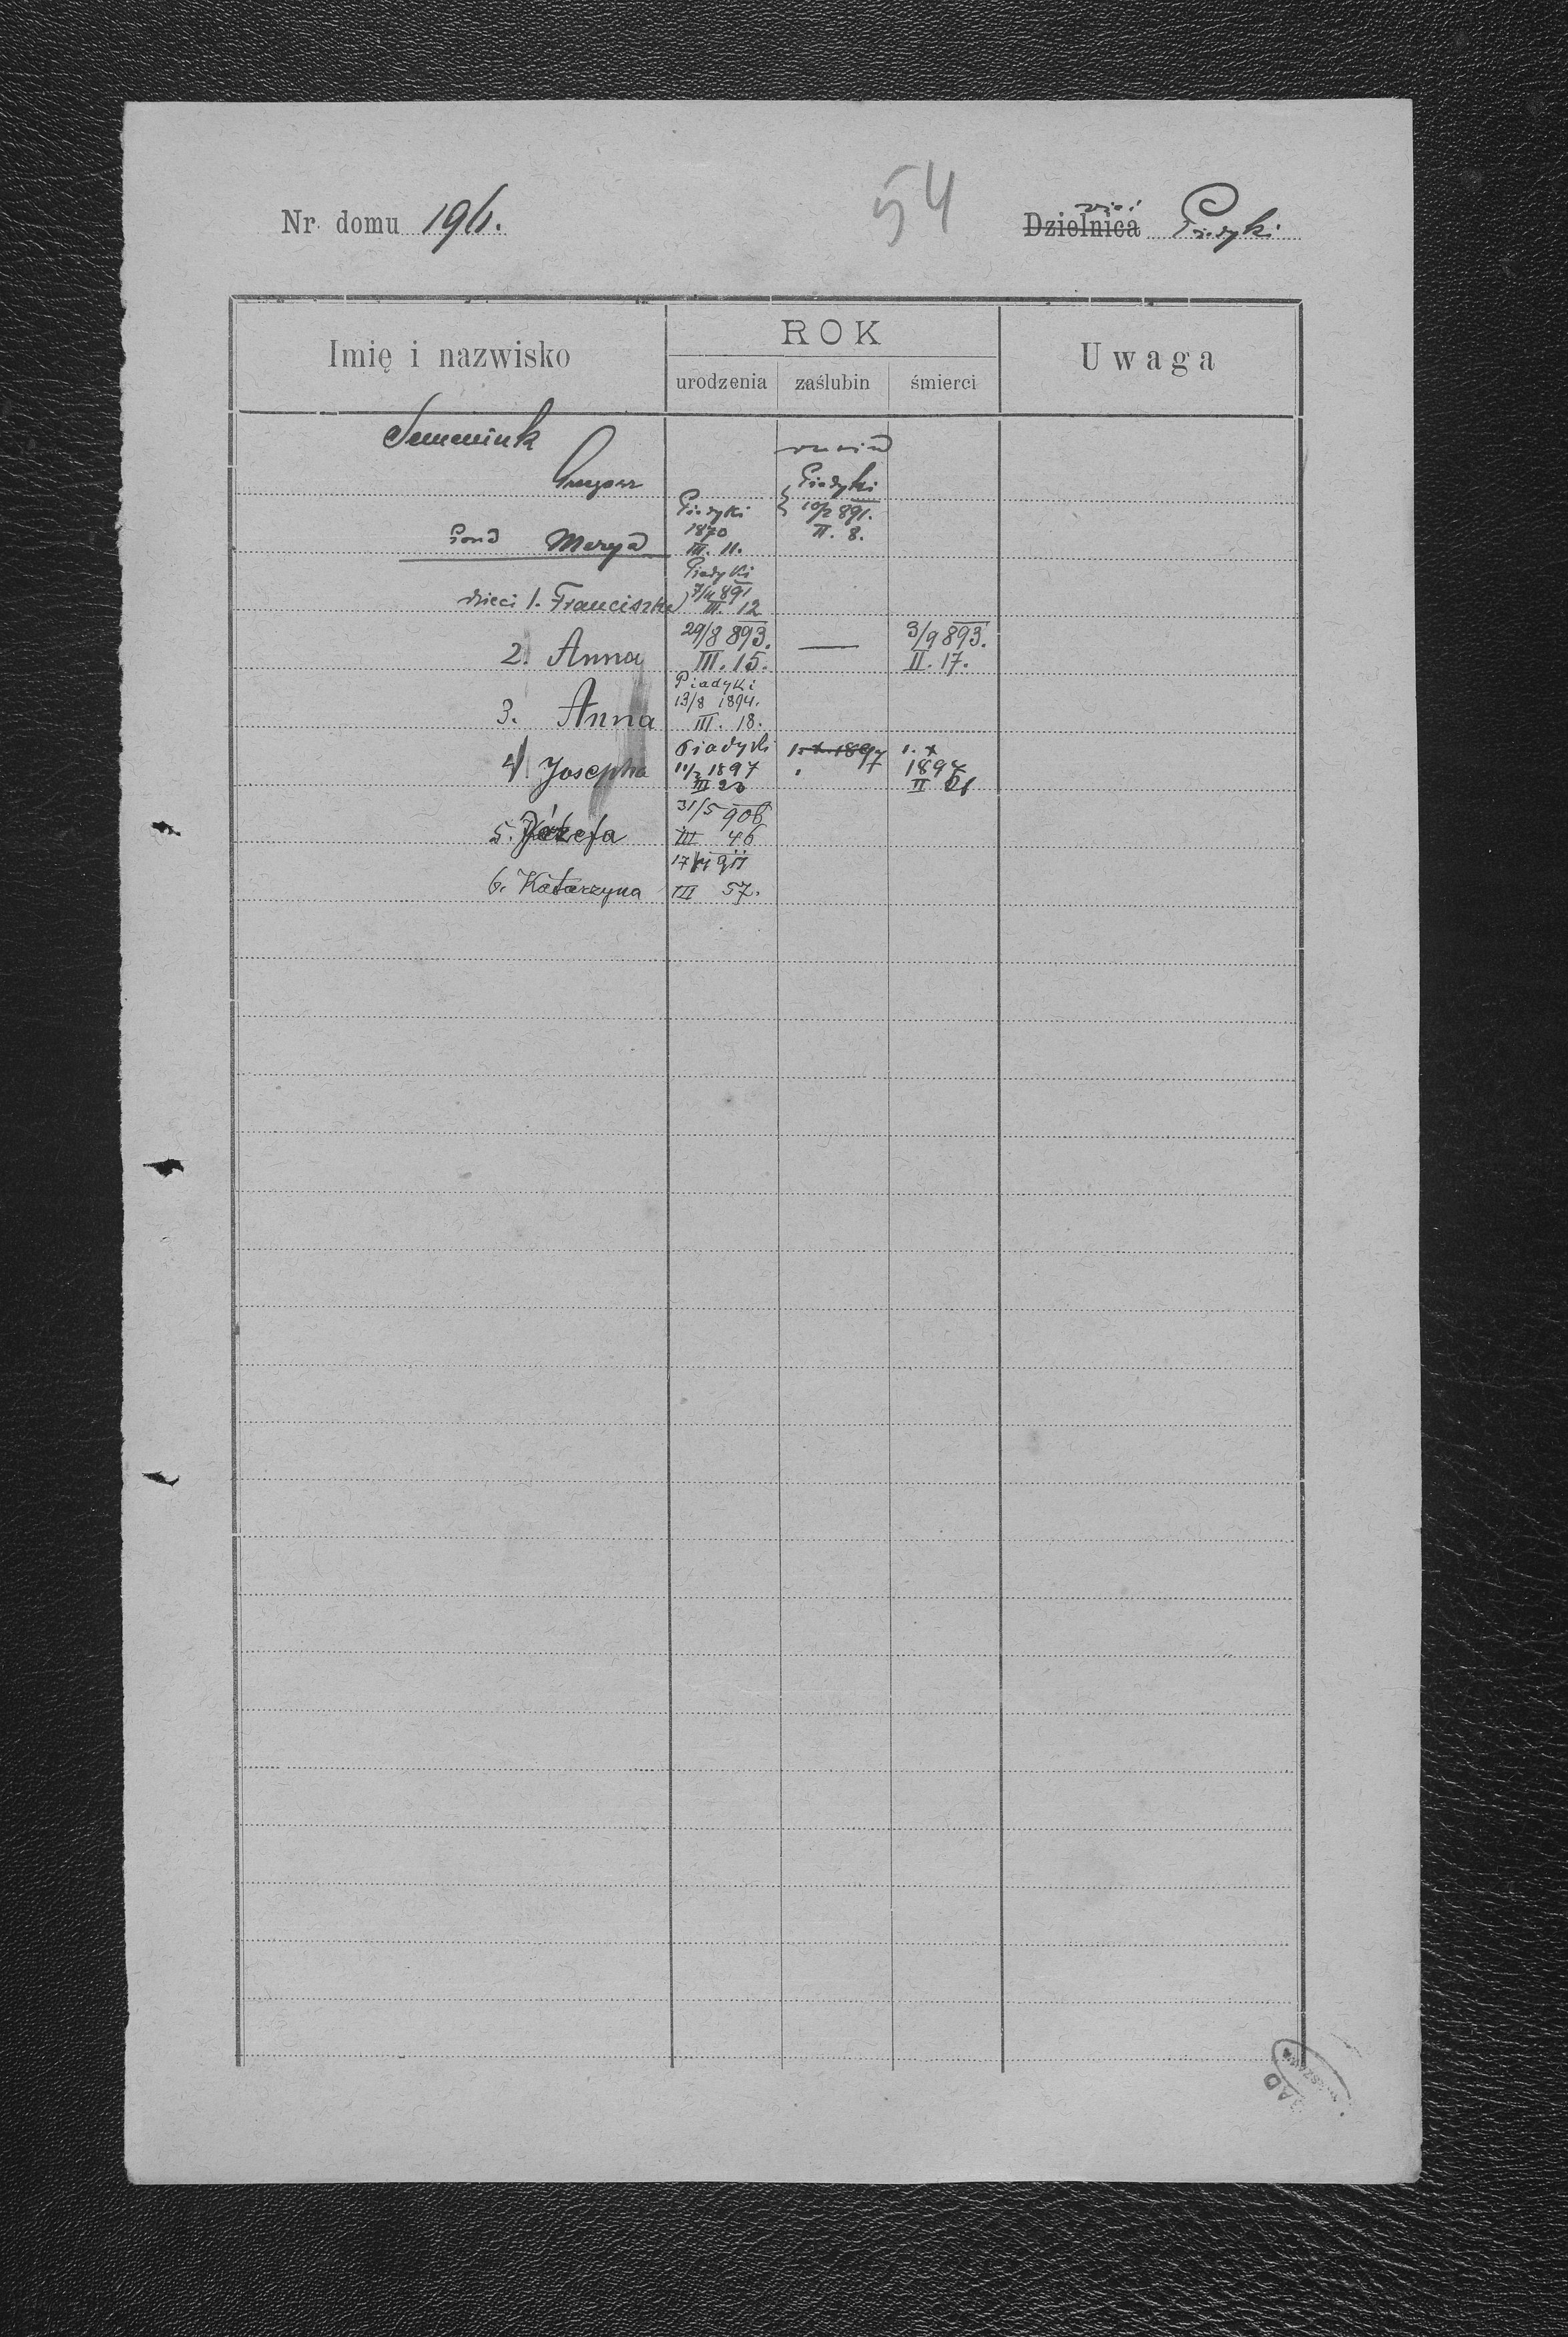 54
Nr. domu 196/1. Dzielnica wieś Piadyki
Imię i nazwisko ROK Uwaga
urodzenia zaślubin śmierci
Semeniuk
Grzegorz Piadyki
10/2 891.
II. 8.
żona Marya Piadyki
1870
III. 11.
dzieci 1. Franciszka Piadyki
891
III. 12
2. Anna 29/8 893. — 3/9 893.
III. 15. II. 17.
3. Anna Piadyki
13/8 1894.
III. 18.
4. Josepha Piadyki 1. X. 1897 1. X
11/2 1897 1897
III 23 II 21
5. Józefa 31/5 906
III 46
6. Katarzyna 17/VI 911
III 57.